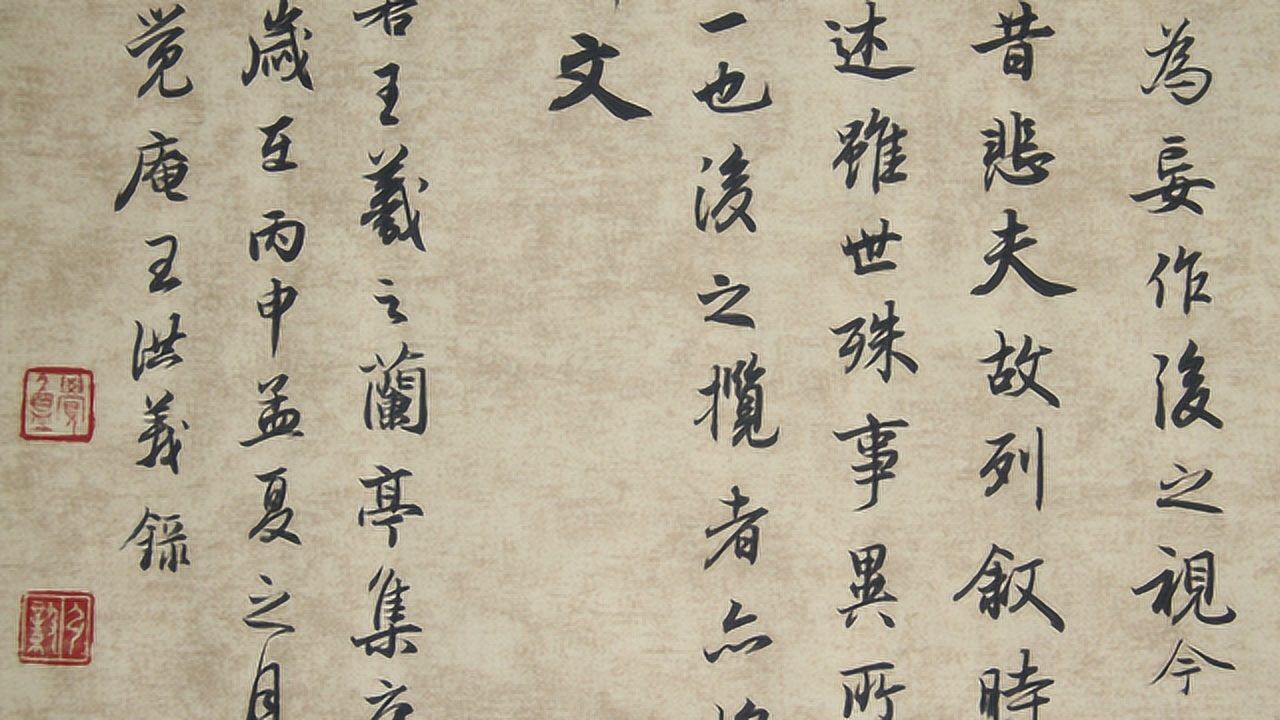 為妄作後之視今
昔悲夫故列叙時
述雖世殊事異所
一也後之攬者亦
文
右王羲之蘭亭集序
歲在丙申孟夏之月
覚庵王洪義錄